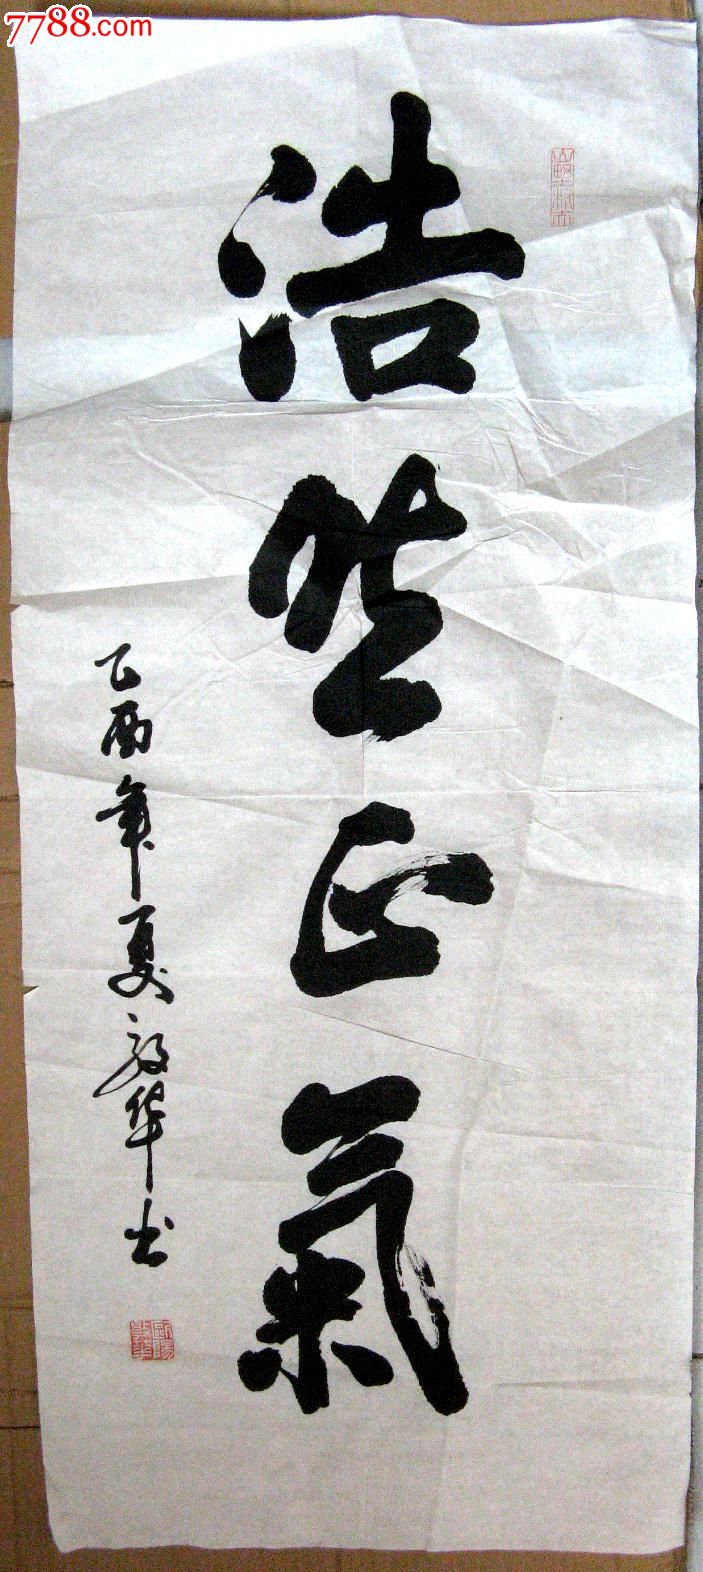 7788.com
浩然正氣
乙酉年夏敦华书